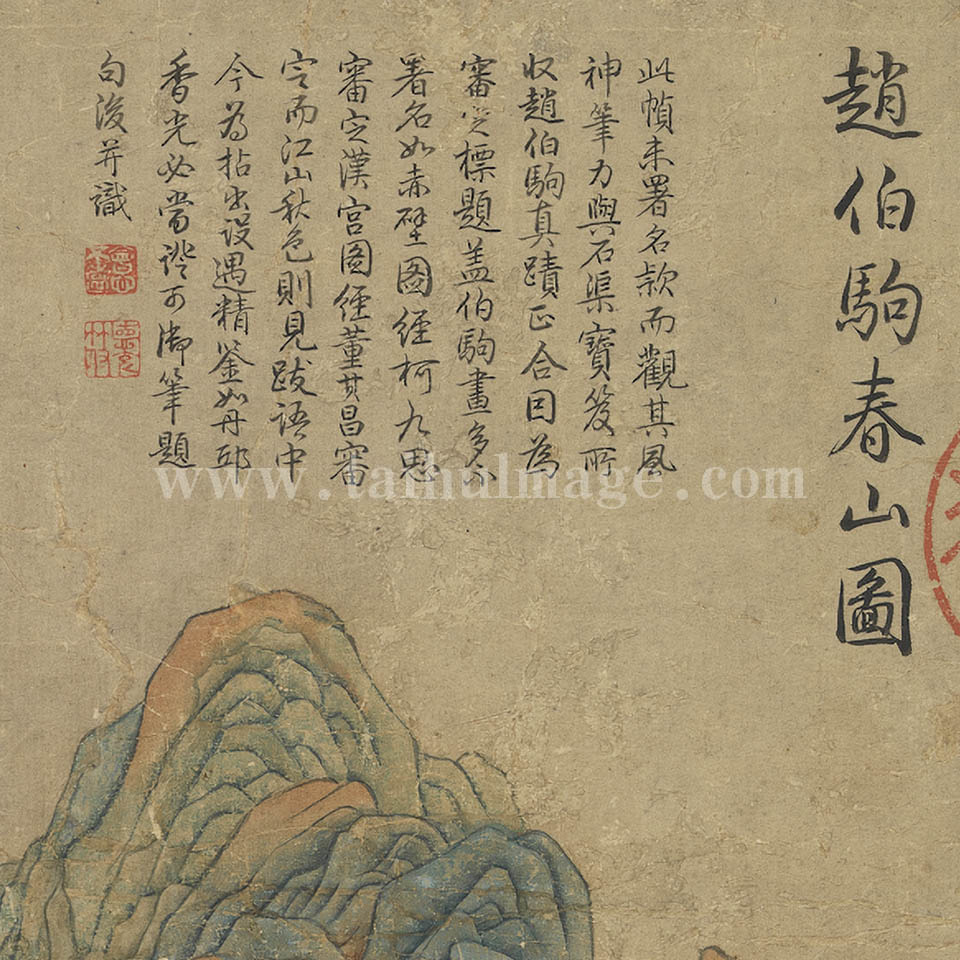 趙伯駒春山圖
此幀未署名款而觀其風
神筆力與石渠寶笈所
収趙伯駒真蹟正合因為
審定標題盖伯駒畫多不
署名如赤壁圖經柯九思
審定漢宮圖經董其昌審
定而江山秋色則見跋語中
今為拈出設遇精鉴如丹邱
香光必當證可御筆題
句後并識
www.taihuimage.com